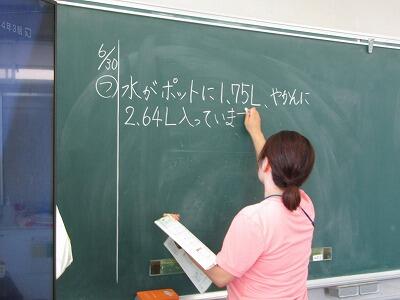 4年3組
6/30
つ 水がポットに1.75L、やかんに
2.64L入っていま